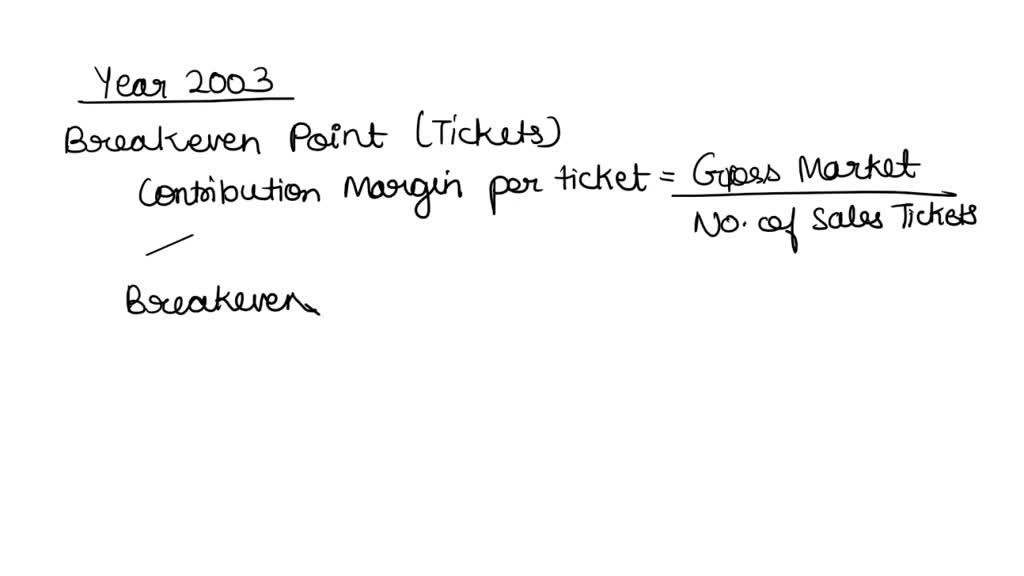 Year 2003
Breakeven Point (Tickets)
Contribution Margin per ticket = Gross Market
No. of Sales Tickets
Breakeven